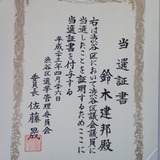 当選証書
鈴木建邦殿
右は渋谷区において渋谷区議会議員に
当選したことを証明するためここに
当選証書を付与する
平成二十三年四月二十六日
渋谷区選挙管理委員会
委員長 佐藤